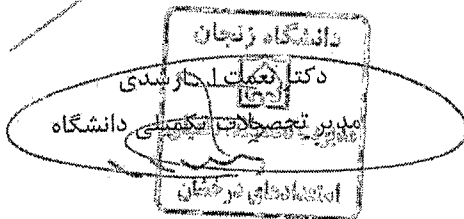 دانشگاه زنجان
دکتر نعمت ارشدی
مدیر تحصیلات تکمیلی دانشگاه
استعدادهای درخشان